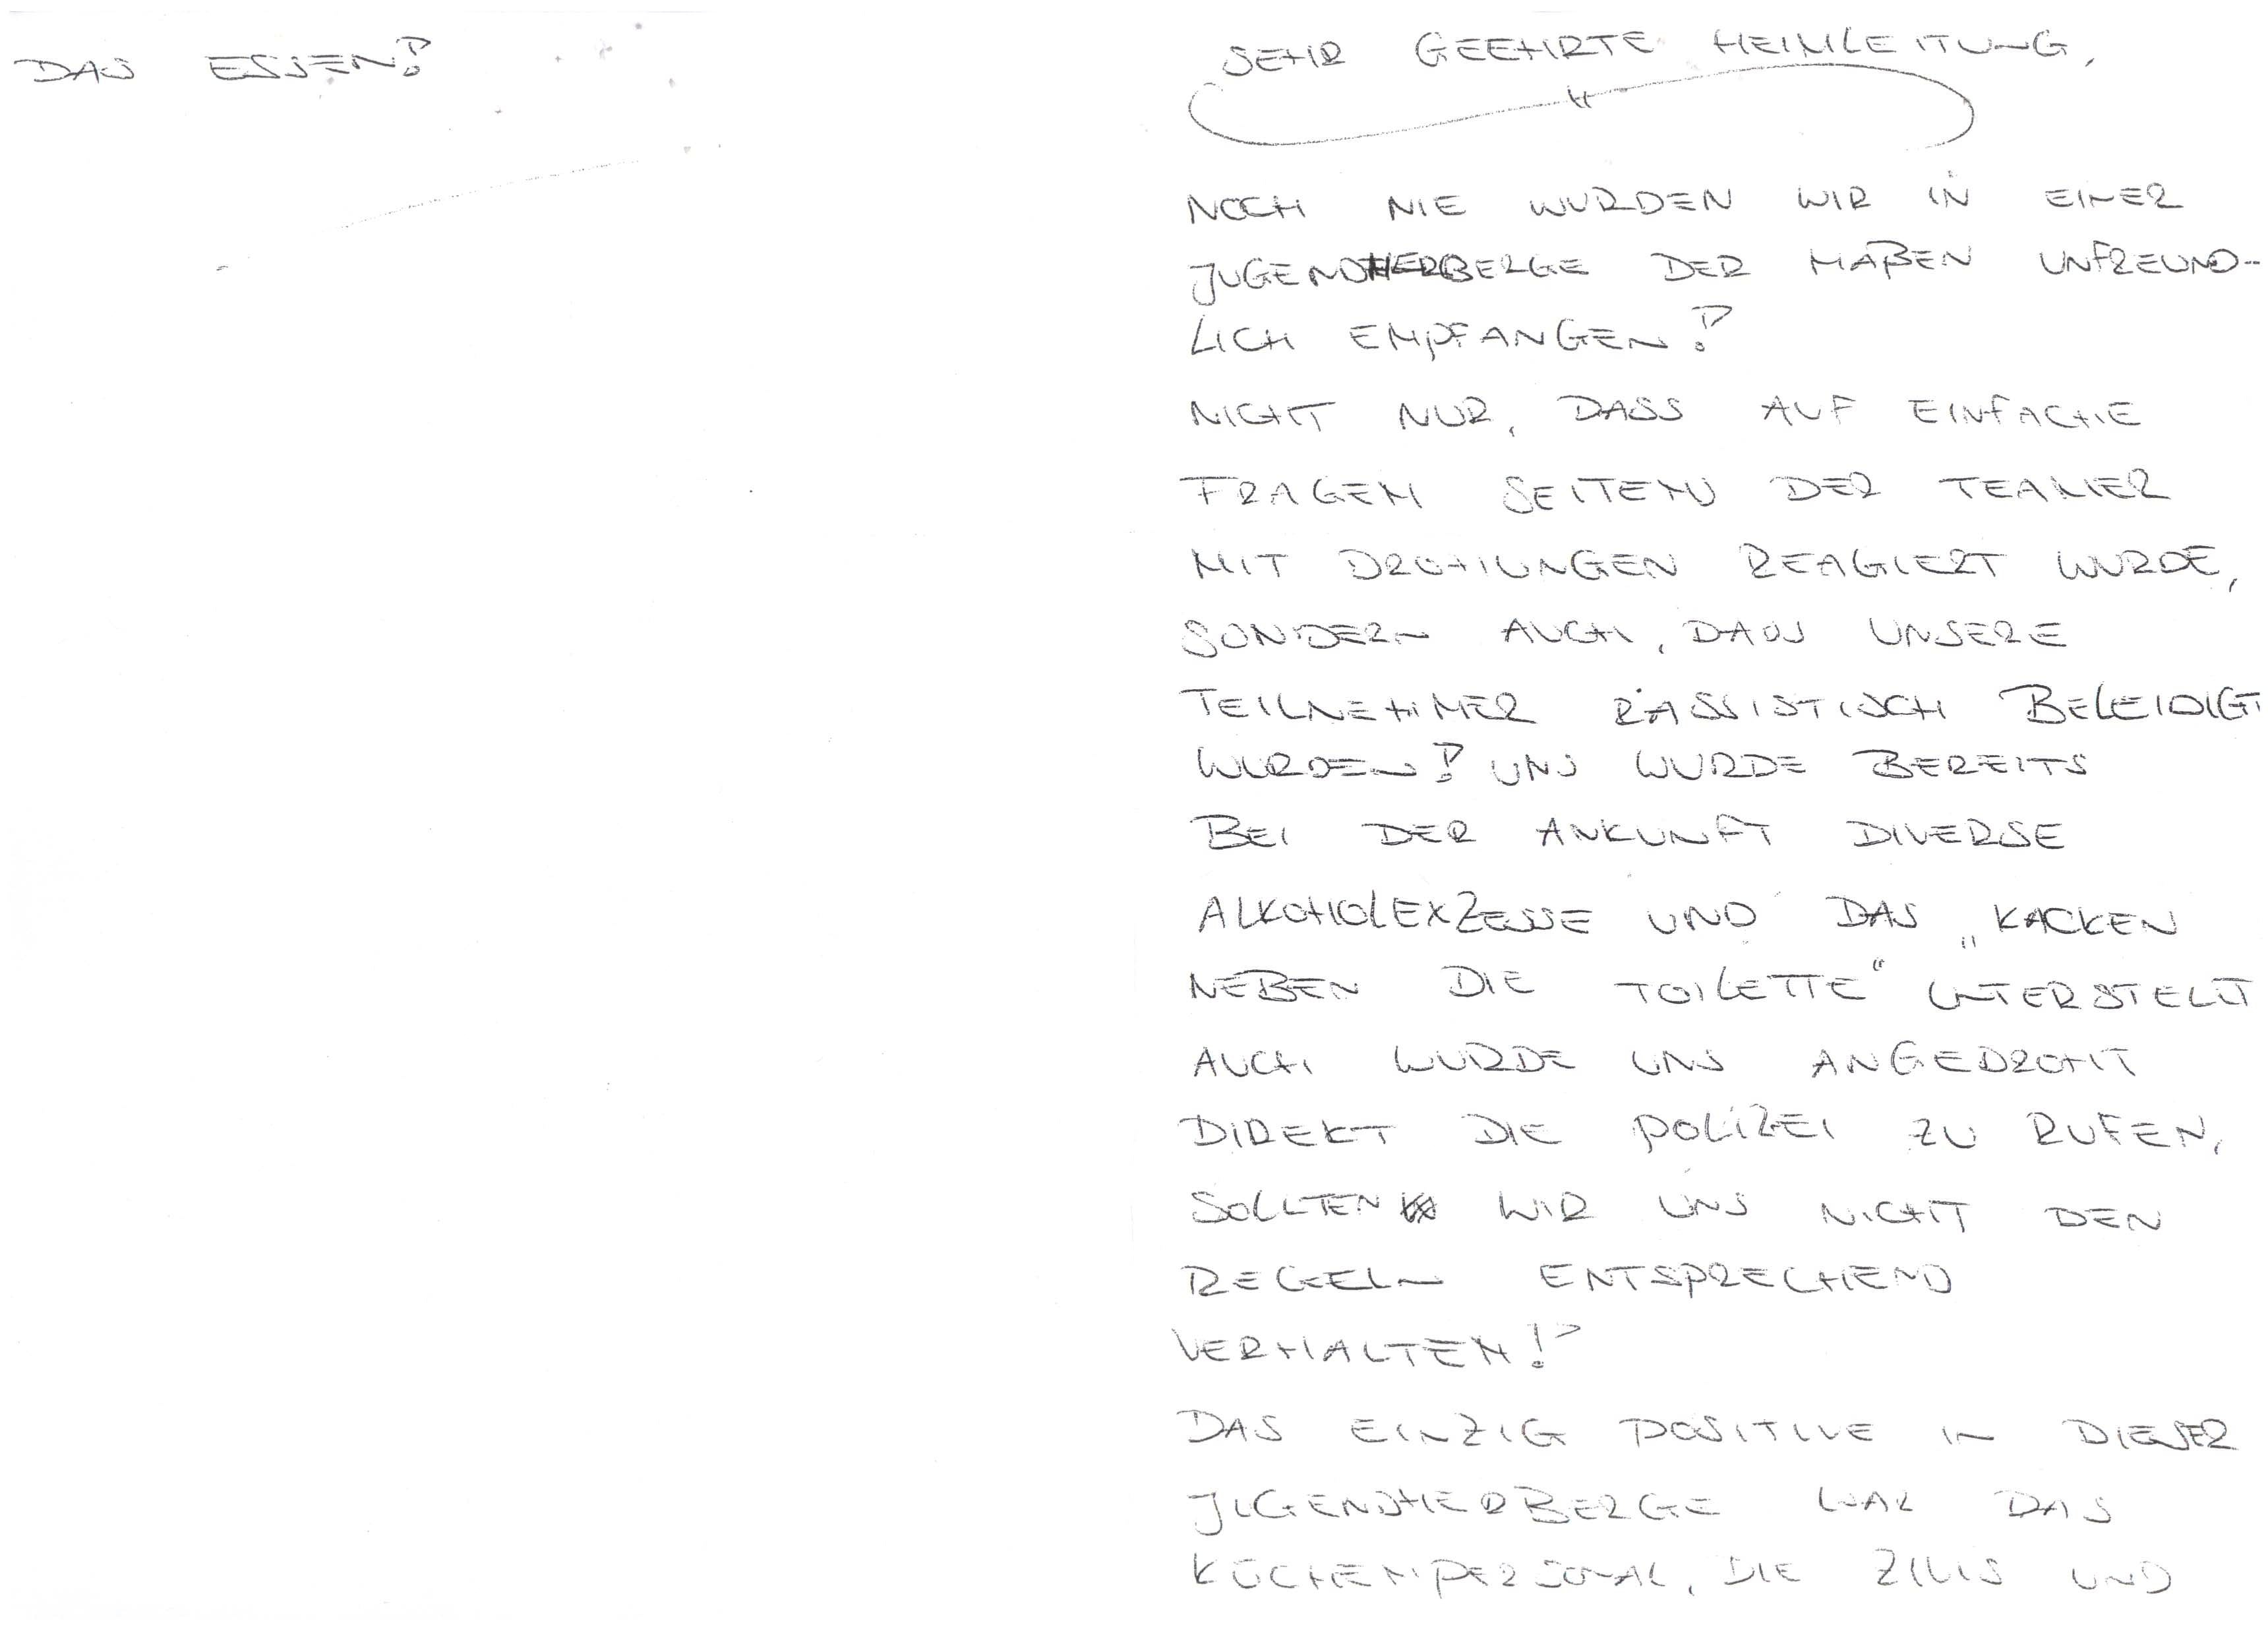 SEHR GEEHRTE HEIMLEITUNG,
NOCH NIE WURDEN WIR IN EINER
JUGENDHERBERGE DER MAßEN UNFREUND-
LICH EMPFANGEN!
NICHT NUR, DASS AUF EINFACHE
FRAGEN SEITENS DER TEAMER
MIT DROHUNGEN REAGIERT WURDE,
SONDERN AUCH, DASS UNSERE
TEILNEHMER RASSISTISCH BELEIDIGT
WURDEN! UNS WURDE BEREITS
BEI DER ANKUNFT DIVERSE
ALKOHOLEXZESSE UND DAS „KACKEN
NEBEN DIE TOILETTE“ UNTERSTELLT
AUCH WURDE UNS ANGEDROHT
DIREKT DIE POLIZEI ZU RUFEN,
SOLLTEN WIR UNS NICHT DEN
REGELN ENTSPRECHEND
VERHALTEN!
DAS EINZIG POSITIVE IN DIESER
JUGENDHERBERGE WAR DAS
KÜCHENPERSONAL, DIE ZIVIS UND
DAS ESSEN!